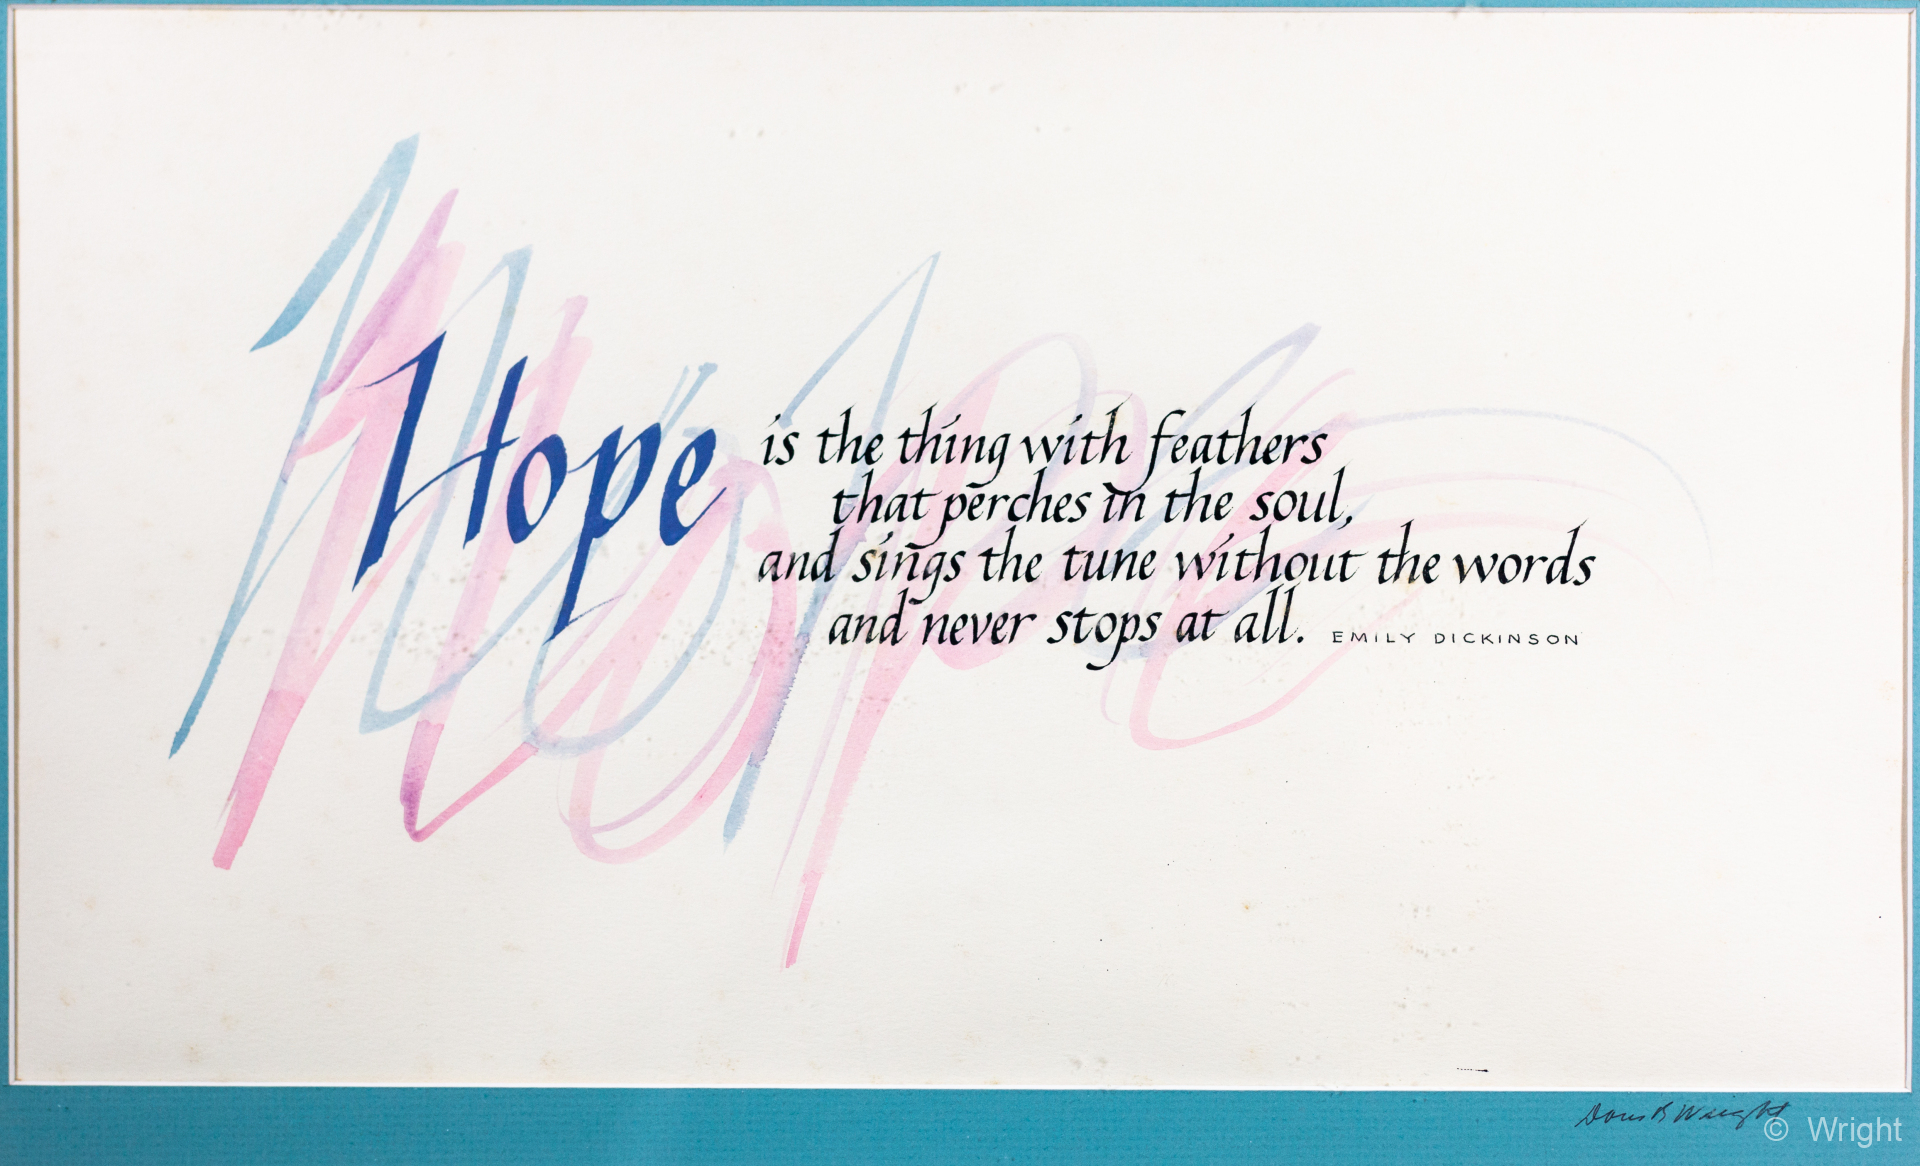 Hope is the thing with feathers
that perches in the soul,
and sings the tune without the words
and never stops at all. EMILY DICKINSON
Doris B Wright
© Wright